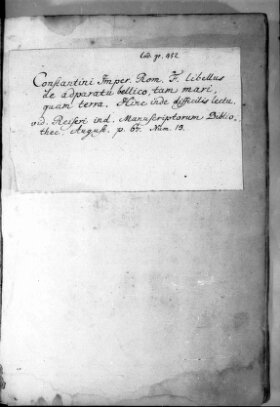 Cod. gr. 452
Constantini Imper. Rom. F. libellus
de adparatu bellico, tam mari,
quam terra. Hinc inde difficilis lectu,
vid. Reiseri ind. Manuscriptorum Biblio,
thec August. p. 67. Num. 19.